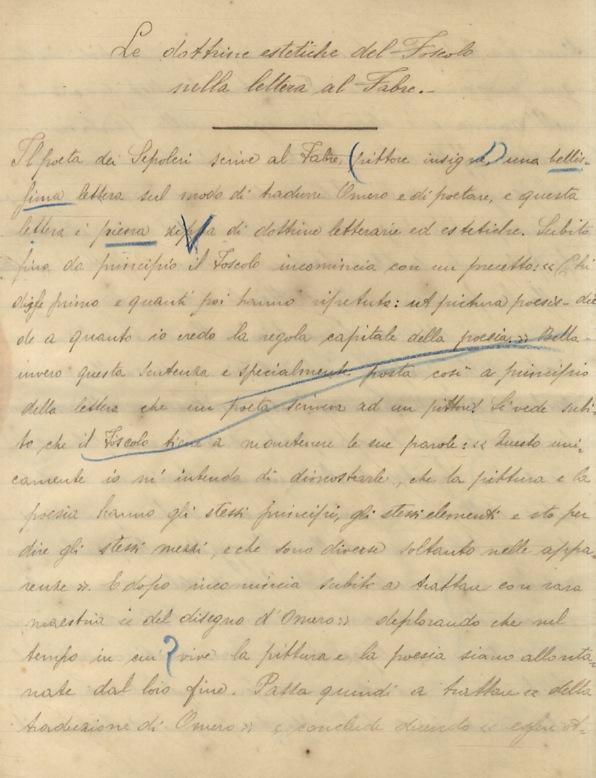 Le dottrine estetiche del Foscolo
nella lettera al Fabre.-
Il poeta dei Sepolcri scrive al Fabre, (pittore insigne,) una bellis-
sima lettera sul modo di tradurre Omero e di poetare, e questa
lettera è piena zeppa di dottrine letterarie ed estetiche. Subito
fino da principio il Foscolo incomincia con un precetto: « Chi
disse primo e quanti poi hanno ripetuto: ut pictura poesis - die-
de a quanto io credo la regola capitale della poesia.» Bella
invero questa sentenza e specialmente posta così a principio
della lettera che un poeta scriveva ad un pittore! Si vede subi-
to che il Foscolo tiene a mantenere le sue parole: « Questo uni-
camente io m'intendo di dimostrarle, che la pittura e la
poesia hanno gli stessi principi, gli stessi elementi e sto per
dire gli stessi mezzi, e che sono diverse soltanto nelle appa-
renze ». E dopo incomincia subito a trattare con rara
maestria « del disegno d'Omero » deplorando che nel
tempo in cui ? vive la pittura e la poesia siano allonta-
nate dal loro fine. Passa quindi a trattare « della
traduzione di Omero » e conclude dicendo «